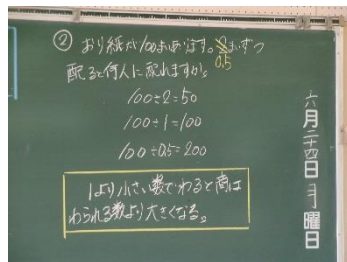 ② おり紙が100まいあります。2まいずつ
0.5
配ると何人に配れますか。
100÷2=50
100÷1=100
100÷0.5=200
1より小さい数でわると商は
わられる数より大きくなる。
六月二十四日 月曜日